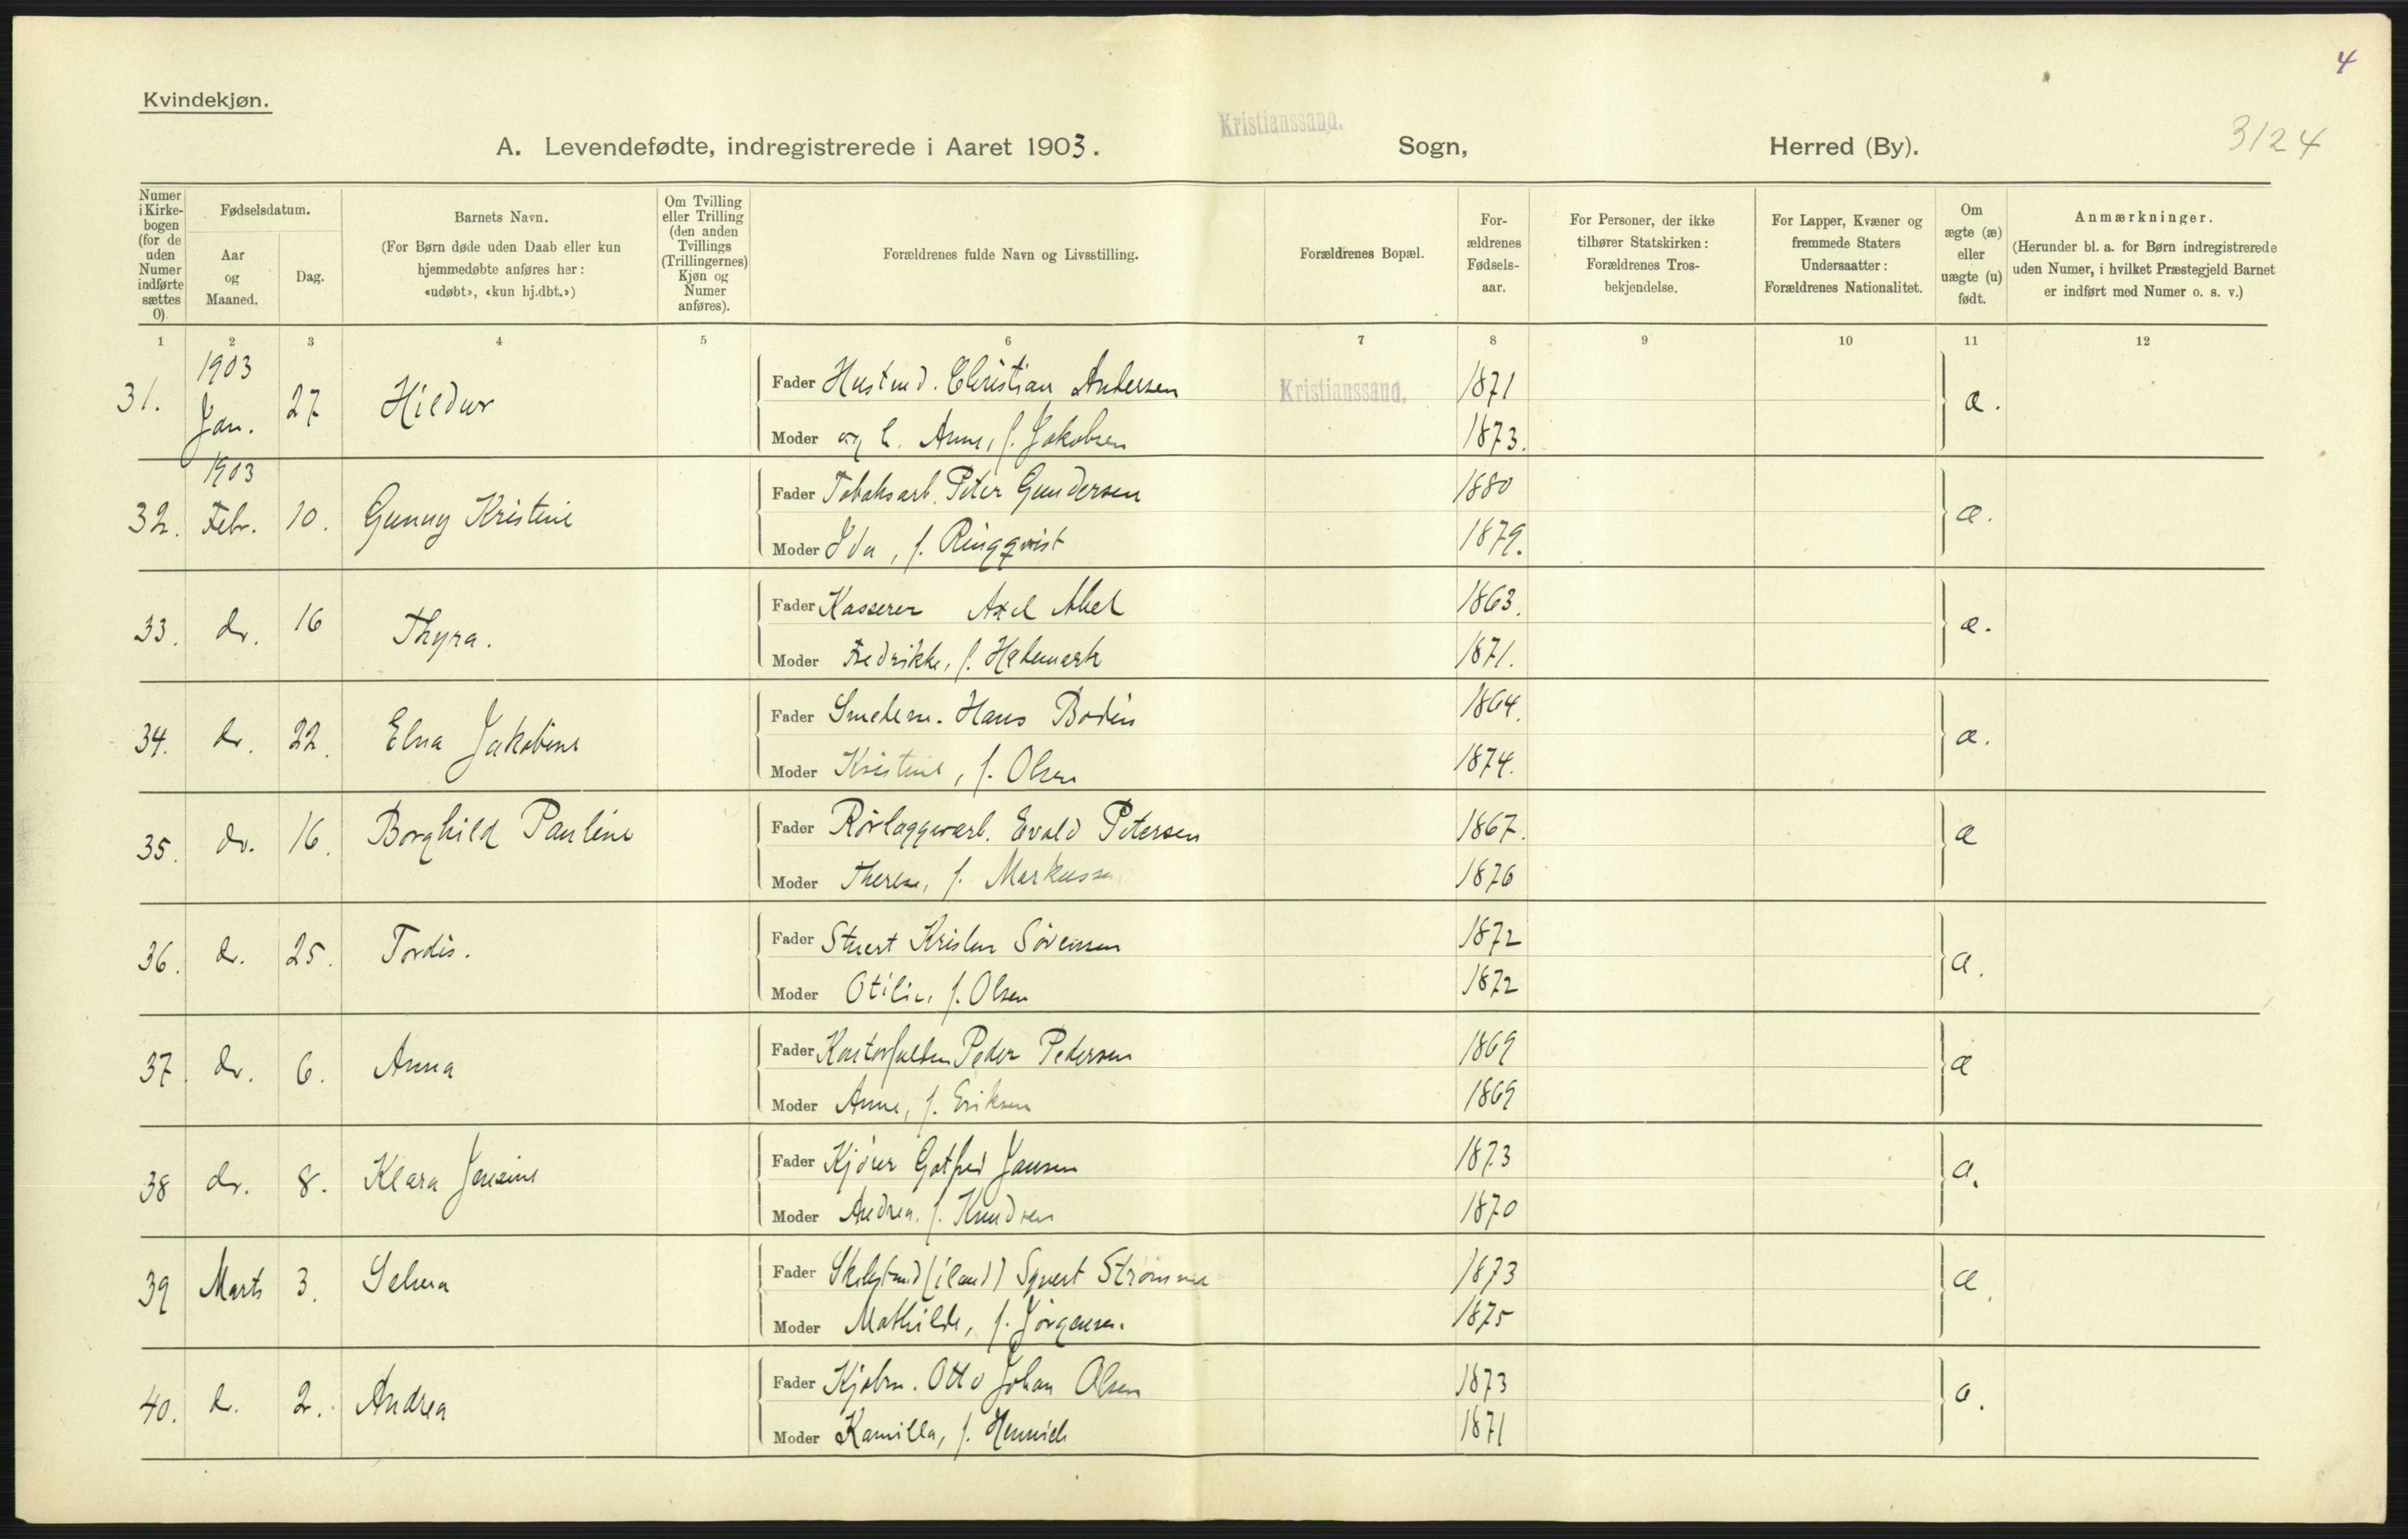 4
Kvindekjøn.
Kristianssand.
3124
A. Levendefødte, indregistrerede i Aaret 1903. Sogn, Herred (By).
Numer i Kirkebogen (for de uden Numer indførte sættes 0)
Fødselsdatum.
Aar og Maaned.
Dag.
Barnets Navn.
(For Børn døde uden Daab eller kun hjemmedøbte anføres her: «udøbt», «kun hj.dbt.»)
Om Tvilling eller Trilling (den anden Tvillings (Trillingernes) Kjøn og Numer anføres).
Forældrenes fulde Navn og Livsstilling.
Forældrenes Bopæl.
Forældrenes Fødselsaar.
For Personer, der ikke tilhører Statskirken: Forældrenes Trosbekjendelse.
For Lapper, Kvæner og fremmede Staters Undersaatter: Forældrenes Nationalitet.
Om ægte (æ) eller uægte (u) født.
Anmærkninger.
(Herunder bl. a. for Børn indregistrerede uden Numer, i hvilket Præstegjeld Barnet er indført med Numer o. s. v.)
1 2 3 4 5 6 7 8 9 10 11 12
31. 1903 Jan. 27 Hildur Fader Hustmd. Christian Andersen Kristianssand. 1871 æ.
Moder og h. Anne, f. Jakobsen 1873.
32. 1903 Febr. 10. Gunny Kristine Fader Tobaksarb. Peter Gundersen 1880 æ.
Moder Ida, f. Ringqvist 1879.
33. do. 16 Thyra. Fader Kasserer Axel Abel 1863. æ.
Moder Fredrikke, f. 1871.
34. do. 22. Elna Jakobine Fader Smedem. Hans Bodin 1864. æ.
Moder Kristine, f. Olsen 1874.
35. do. 16. Borghild Pauline Fader Rørlæggerarb. Evald Petersen 1867. æ
Moder Therese, f. Markussen 1876
36. do. 25. Tordis. Fader Stuert Kristen Sørensen 1872 æ.
Moder Otilie, f. Olsen 1872
37. do. 6. Anna Fader Peder Pedersen 1869 æ
Moder Anne, f. Eriksen 1869
38 do. 8. Klara Jensine Fader Gotfred Jansen 1873 æ.
Moder Andrea, f. Knudsen 1870
39 Marts 3. Selma Fader (iland) Syvert Strømme 1873 æ.
Moder Mathilde, f. Jørgensen. 1875
40. do. 2. Andrea Fader Kjøbm. Otto Johan Olsen 1873 æ.
Moder Kamilla, f. Hennich 1871